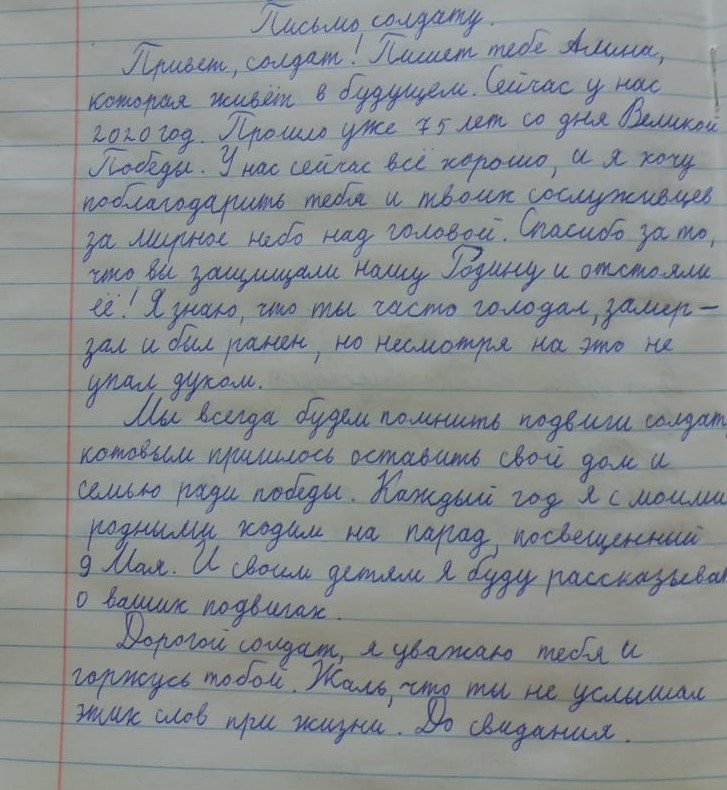 Письмо солдату.
Привет, солдат! Пишет тебе Алина,
которая живёт в будущем. Сейчас у нас
2020 год. Прошло уже 75 лет со дня Великой
Победы. У нас сейчас всё хорошо, и я хочу
поблагодарить тебя и твоих сослуживцев
за мирное небо над головой. Спасибо за то,
что вы защищали нашу Родину и отстояли
её! Я знаю, что ты часто голодал, замер-
зал и был ранен, но несмотря на это не
упал духом.
Мы всегда будем помнить подвиги солдат
которым пришлось оставить свой дом и
семью ради победы. Каждый год я с моими
родными ходим на парад, посвещенный
9 Мая. И своим детям я буду рассказыва
о ваших подвигах.
Дорогой солдат, я уважаю тебя и
горжусь тобой. Жаль, что ты не услышал
этих слов при жизни. До свидания.